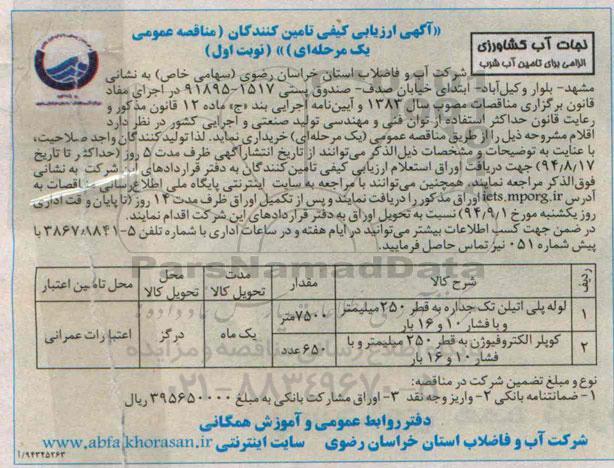 «آگهی ارزیابی کیفی تامین کنندگان (مناقصه عمومی
یک مرحله‌ای)» (نوبت اول)
نجات آب کشاورزی
الزامی برای تامین آب شرب
شرکت آب و فاضلاب استان خراسان رضوی (سهامی خاص) به نشانی
مشهد- بلوار وکیل‌آباد- ابتدای خیابان صدف- صندوق پستی ۱۵۱۷-۹۱۸۹۵ در اجرای مفاد
قانون برگزاری مناقصات مصوب سال ۱۳۸۳ و آیین‌نامه اجرایی بند «ج» ماده ۱۲ قانون مذکور و
رعایت قانون حداکثر استفاده از توان فنی و مهندسی تولید صنعتی و اجرایی کشور در نظر دارد
اقلام مشروحه ذیل را از طریق مناقصه عمومی (یک مرحله‌ای) خریداری نماید. لذا تولیدکنندگان واجد صلاحیت،
با عنایت به توضیحات و مشخصات ذیل‌الذکر می‌توانند از تاریخ انتشار آگهی ظرف مدت ۵ روز (حداکثر تا تاریخ
۹۴/۸/۱۷) جهت دریافت اوراق استعلام ارزیابی کیفی تامین کنندگان به دفتر قراردادهای این شرکت به نشانی
فوق‌الذکر مراجعه نمایند، همچنین می‌توانند با مراجعه به سایت اینترنتی پایگاه ملی اطلاع‌رسانی مناقصات به
آدرس iets.mporg.ir اوراق مذکور را دریافت نمایند و پس از تکمیل اوراق ظرف مدت ۱۴ روز (تا پایان وقت اداری
روز یکشنبه مورخ ۹۴/۹/۱) نسبت به تحویل اوراق به دفتر قراردادهای این شرکت اقدام نمایند.
در ضمن جهت کسب اطلاعات بیشتر می‌توانید در ایام هفته و در ساعات اداری با شماره تلفن ۵-۳۸۶۷۰۸۸۴۱ با
پیش شماره ۰۵۱ نیز تماس حاصل فرمایید.
ردیف شرح کالا مقدار مدت تحویل کالا محل تحویل کالا محل تامین اعتبار
۱ لوله پلی اتیلن تک جداره به قطر ۲۵۰ میلیمتر و با فشار ۱۰ و ۱۶ بار ۷۵۰۰ متر یک ماه درگز اعتبارات عمرانی
۲ کوپلر الکتروفیوژن به قطر ۲۵۰ میلیمتر و با فشار ۱۰ و ۱۶ بار ۶۵۰ عدد
نوع و مبلغ تضمین شرکت در مناقصه:
۱- ضمانتنامه بانکی ۲- واریز وجه نقد ۳- اوراق مشارکت بانکی به مبلغ ۳۹۵۶۵۰۰۰۰ ریال
دفتر روابط عمومی و آموزش همگانی
شرکت آب و فاضلاب استان خراسان رضوی سایت اینترنتی www.abfakhorasan.ir
ParsNamadData
۰۲۱-۸۸۳۴۹۶۷۰